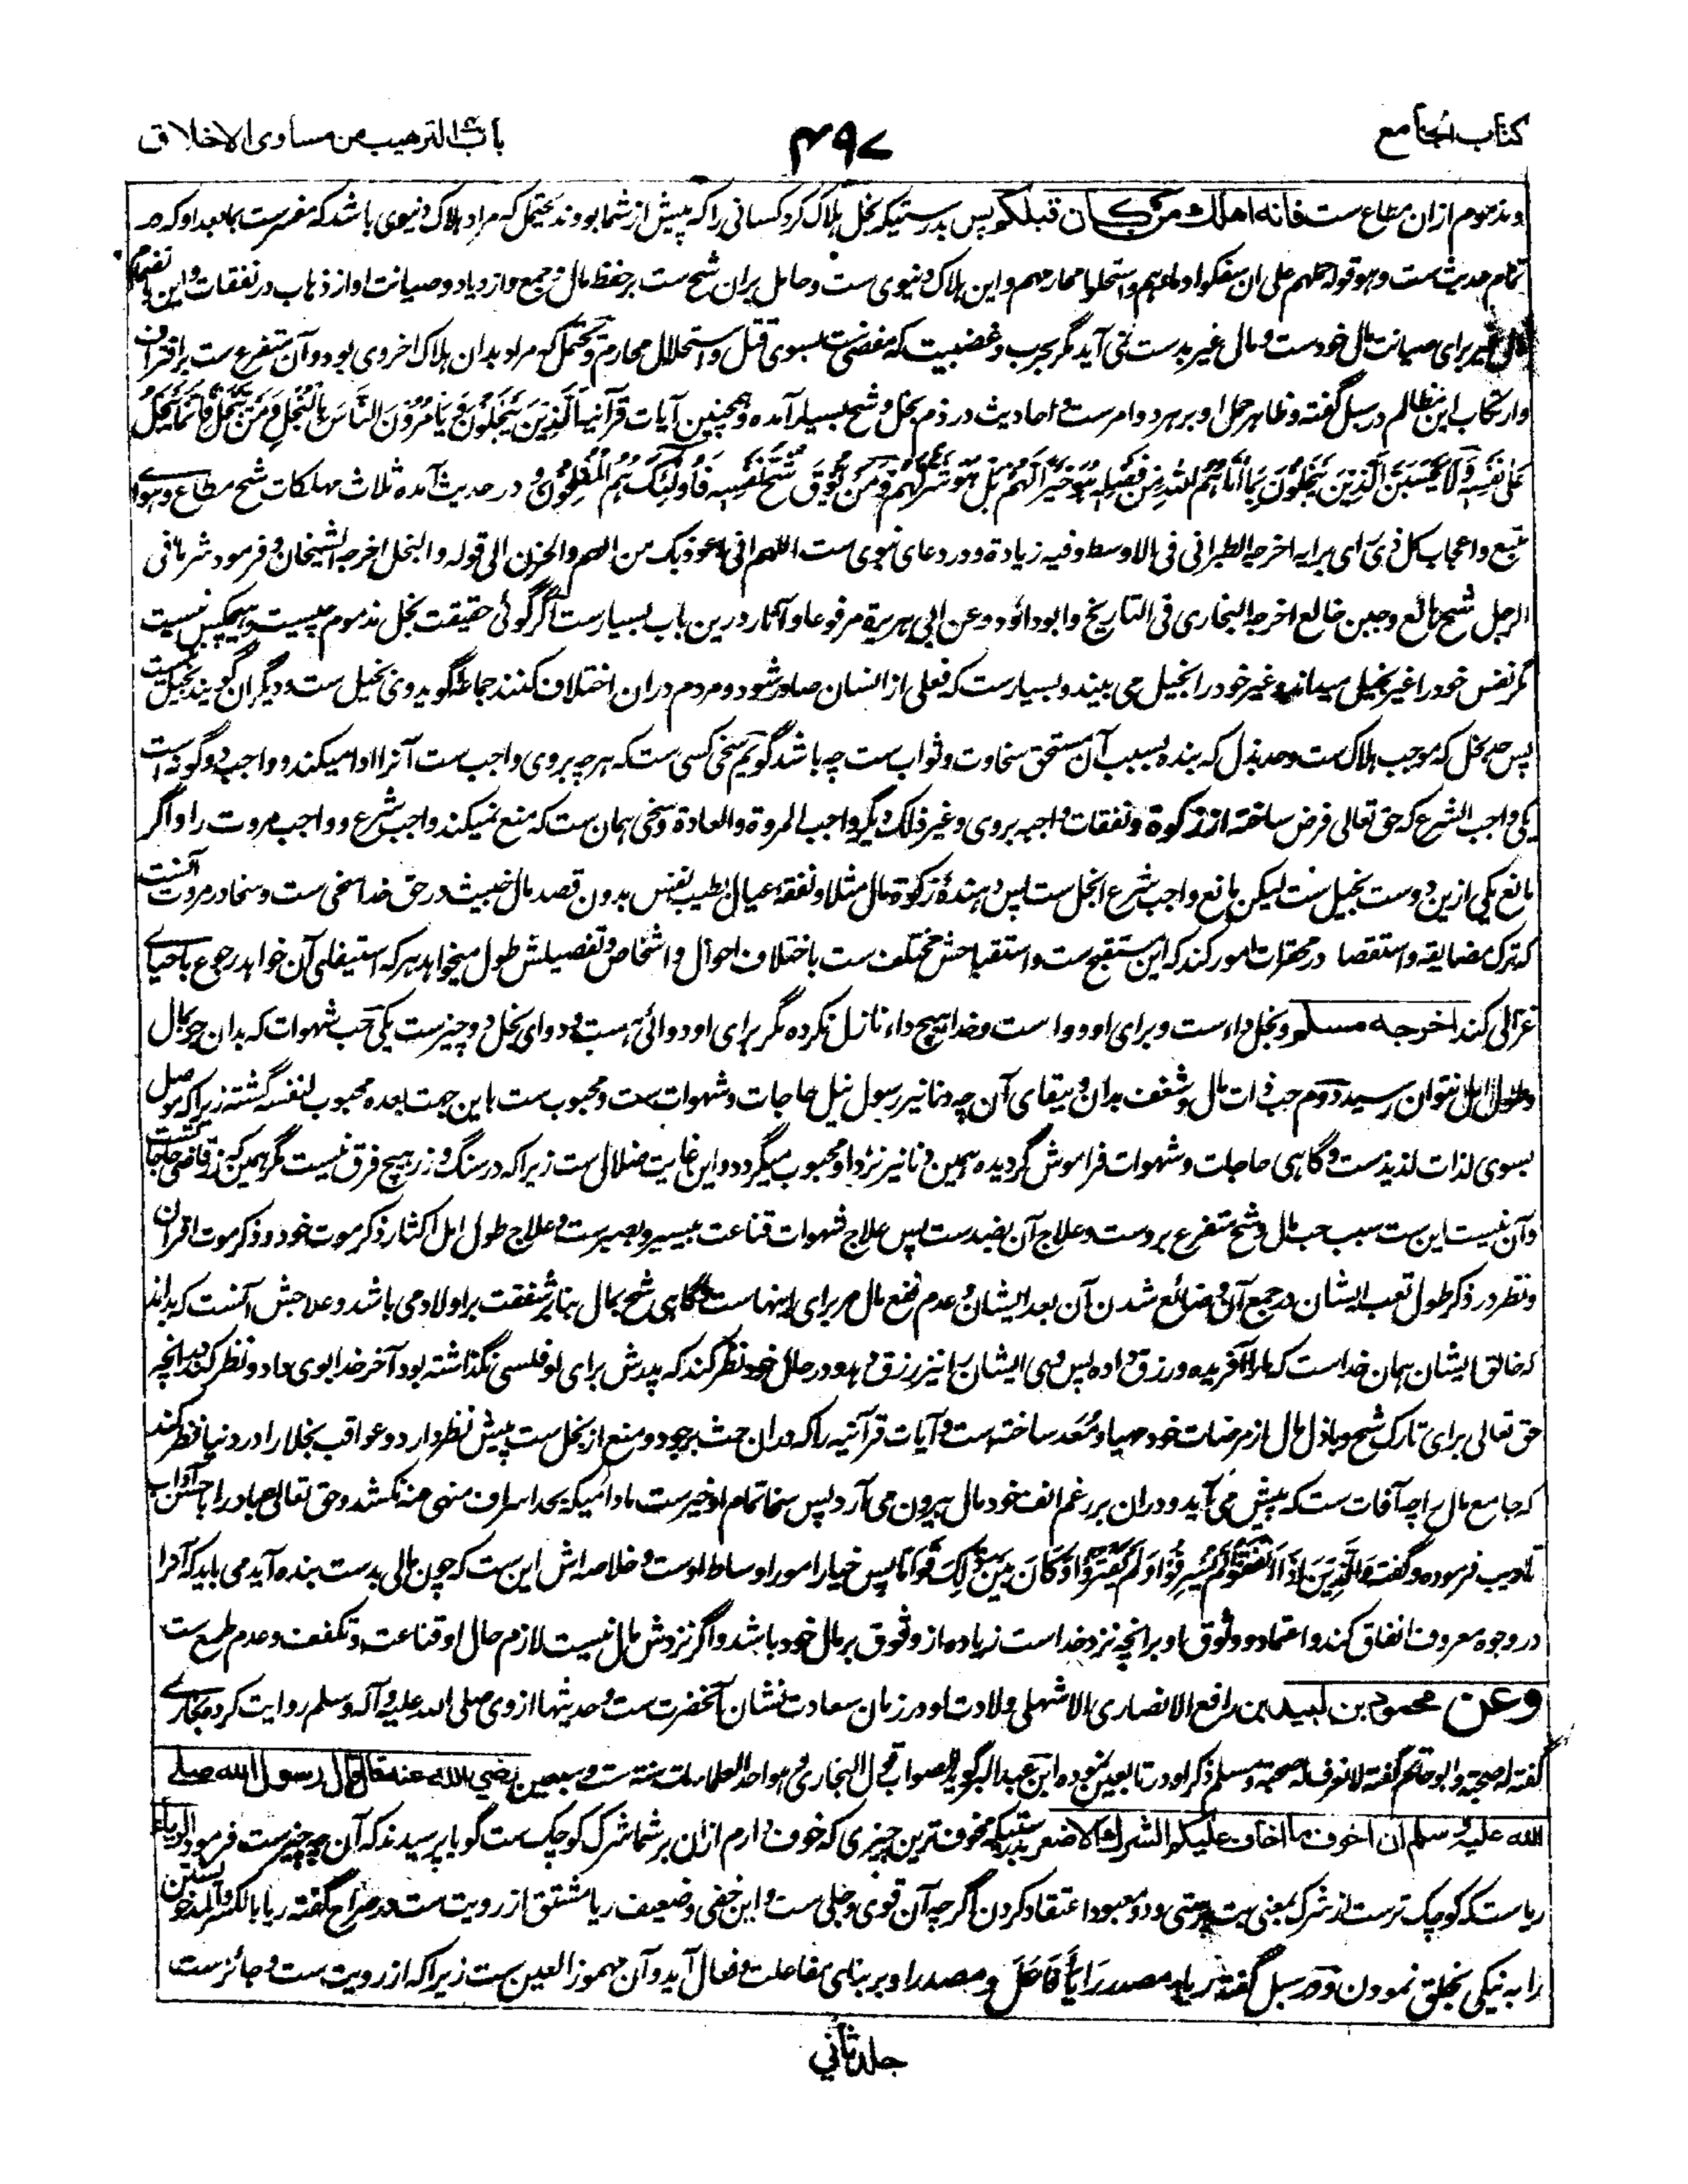 کتاب الجامع
۴۹۷
باب الترهیب من مساوی الاخلاق
و مذموم ازان مطاع ست فانه اهلك من كان قبلكم پس بدرستیکه بخل هلاک کرد کسانی را که پیش از شما بودند یحتمل که مراد هلاک دنیوی باشد که مفسرست بمابعد او که در
تمام حدیث ست و هو قوله حملهم علی ان سفکوا دماءهم و استحلوا محارمهم و این هلاک دنیوی ست و حامل بران شح ست بر حفظ مال و جمع و ازدیاد و صیانت او از ذهاب در نفقات و این بانضمام
مال غیر برای صیانت مال خودست و مال غیر بدست نمی آید مگر بحرب و غضبیت که مفضی ست بسوی قتل و استحلال محارم و یحتمل که مراد بدان هلاک اخروی بود و آن متفرع ست بر اقتران
و ارتکاب این مظالم در سبل گفته و ظاهر حمل او بر هر دو امرست و احادیث در ذم بخل و شح بسیار آمده و همچنین آیات قرآنیه الَّذِينَ يَبْخَلُونَ وَيَأْمُرُونَ النَّاسَ بِالْبُخْلِ وَمَنْ يَبْخَلْ فَإِنَّمَا يَبْخَلُ
عَنْ نَفْسِهِ وَلَا يَحْسَبَنَّ الَّذِينَ يَبْخَلُونَ بِمَا آتَاهُمُ اللَّهُ مِنْ فَضْلِهِ هُوَ خَيْرًا لَهُمْ بَلْ هُوَ شَرٌّ لَهُمْ وَمَنْ يُوقَ شُحَّ نَفْسِهِ فَأُولَئِكَ هُمُ الْمُفْلِحُونَ و در حدیث آمده ثلاث مهلکات شح مطاع و هوای
متبع و اعجاب کل ذی رای برایه اخرجه الطبرانی فی الاوسط و فیه زیادة و در دعای نبوی ست اللهم انی اعوذ بک من الهم و الحزن الی قوله و البخل اخرجه الشیخان و فرمود شر ما فی
الرجل شح هالع و جبن خالع اخرجه البخاری فی التاریخ و ابوداؤد و عن ابی هریرة مرفوعا و آثار درین باب بسیارست اگر گوئی حقیقت بخل مذموم چیست و هیچکس نیست
مگر نفس خود را غیر بخیل میداند و غیر خود را بخیل می بیند و بسیارست که فعلی از انسان صادر شود و مردم دران اختلاف کنند جماعه گوید وی بخیل ست و دیگران گویند بخیل نیست
پس حد بخل که موجب هلاک ست و حد بذل که بنده بسبب آن مستحق سخاوت و ثواب ست چه باشد گویم سخی کسی ست که هرچه بروی واجب ست آنرا ادا میکند و واجب دو گونه است
یکی واجب الشرع که حق تعالی فرض ساخته از زکوة و نفقات واجبه بروی و غیر ذلک دیگر واجب المروة و العادة و سخی همان ست که منع نمیکند واجب شرع و واجب مروت را و اگر
مانع یکی ازین دوست بخیل ست لیکن مانع واجب شرع ابخل ست پس دهنده زکوة مال مثلا و نفقه عیال بطیب نفس بدون قصد مال خبیث در حق خدا سخی ست و سخا در مروت آنست
که ترک مضایقه و استقصا در محقرات امور کند که این مستقبح ست و استقباحش مختلف ست باختلاف احوال و اشخاص و تفصیلش طول میخواهد هر که استیفای آن خواهد رجوع باحیای
غزالی کند اخرجه مسلم و بخل داء ست و برای او دوا است و خدا هیچ داء نازل نکرده مگر برای او دوائی هست و دوای بخل دو چیز ست یکی حب شهوات که بدان جز بمال
و طول امل نتوان رسید دوم حب ذات مال و شغف بدان و ببقای آن چه دنانیر رسول نیل حاجات و شهوات ست و محبوب ست باین جهت بعده محبوب لنفسه گشته زیرا که موصل
بسوی لذات لذیذست و گاهی حاجات و شهوات فراموش گردیده همین دنانیر نزد او محبوب میگردد و این غایت ضلال ست زیرا که در سنگ و زر هیچ فرق نیست مگر همین که زر قاضی حاجات ست
و آن نیست این ست سبب حب مال و شح متفرع بروست و علاج آن بضد ست پس علاج شهوات قناعت بیسیر و بصبرست و علاج طول امل اکثار ذکر موت خود و ذکر موت اقران
و نظر در ذکر طول تعب ایشان در جمع آن و ضائع شدن آن بعد ایشان و عدم نفع مال مر برای اینهاست و گاهی شح بمال بنا بر شفقت بر اولاد می باشد و علاجش آنست که بداند
که خالق ایشان همان خداست که مارا آفریده و رزق داده پس وی ایشان را نیز رزق دهد و در حال خود نظر کند که پدرش برای او فلسی نگذاشته بود آخر خدا بوی داد و نظر کند در انچه
حق تعالی برای تارک شح و باذل مال از مرضات خود مهیا و مُعَد ساخته ست و آیات قرآنیه را که دران حث بر جود و منع از بخل ست پیش نظر دارد و عواقب بخلا را در دنیا نظر کند
که جامع مال را چه آفات ست که پیش می آید و دران بر رغم انف خود مال بیرون می آرد پس سخا تمام او خیرست مادامیکه بحد اسراف منهی عنه نکشد و حق تعالی عباد را باحسن آداب
تادیب فرموده و گفته وَالَّذِينَ إِذَا أَنْفَقُوا لَمْ يُسْرِفُوا وَلَمْ يَقْتُرُوا وَكَانَ بَيْنَ ذَلِكَ قَوَامًا پس خیار امور اوساط اوست و خلاصه اش این ست که چون مالی بدست بنده آید می باید که آنرا
در وجوه معروف انفاق کند و اعتماد و وثوق او بر انچه نزد خداست زیاده از وثوق بر مال خود باشد و اگر نزدش مال نیست لازم حال او قناعت و تکفف و عدم طمع ست
وعن محمود بن لبید بن رافع الانصاری الاشهلی ولادت او در زمان سعادت نشان آنحضرت ست و حدیثها از وی صلی الله علیه و آله و سلم روایت کرده بخاری
گفته له صحبة و ابوحاتم گفته لا نعرف له صحبة و مسلم ذکر او در تابعین نموده ابن عبد البر گوید الصواب قول البخاری و هو احد العلماء مات سنه ست و تسعین رضي الله عنه قال قال رسول الله صلى
الله عليه وسلم ان اخوف ما اخاف عليكم الشرك الاصغر بدرستیکه مخوف ترین چیزی که خوف دارم ازان بر شما شرک کوچک ست گویا پرسیدند که آن چه چیزست فرمود الرياء
ریاست که کوچک ترست از شرک بمعنی بت پرستی و دو معبود اعتقاد کردن اگرچه آن قوی و جلی ست و این خفی و ضعیف ریا مشتق از رویت ست و در صراح گفته ریا بالکسر و المد خویشتن
را به نیکی بخلق نمودن و در سبل گفته ریاء مصدر رَايَأَ فَاعَلَ و مصدر او بر بنای مفاعلت و فعال آید و آن مهموز العین ست زیرا که از رویت ست و جائزست
جلد ثاني